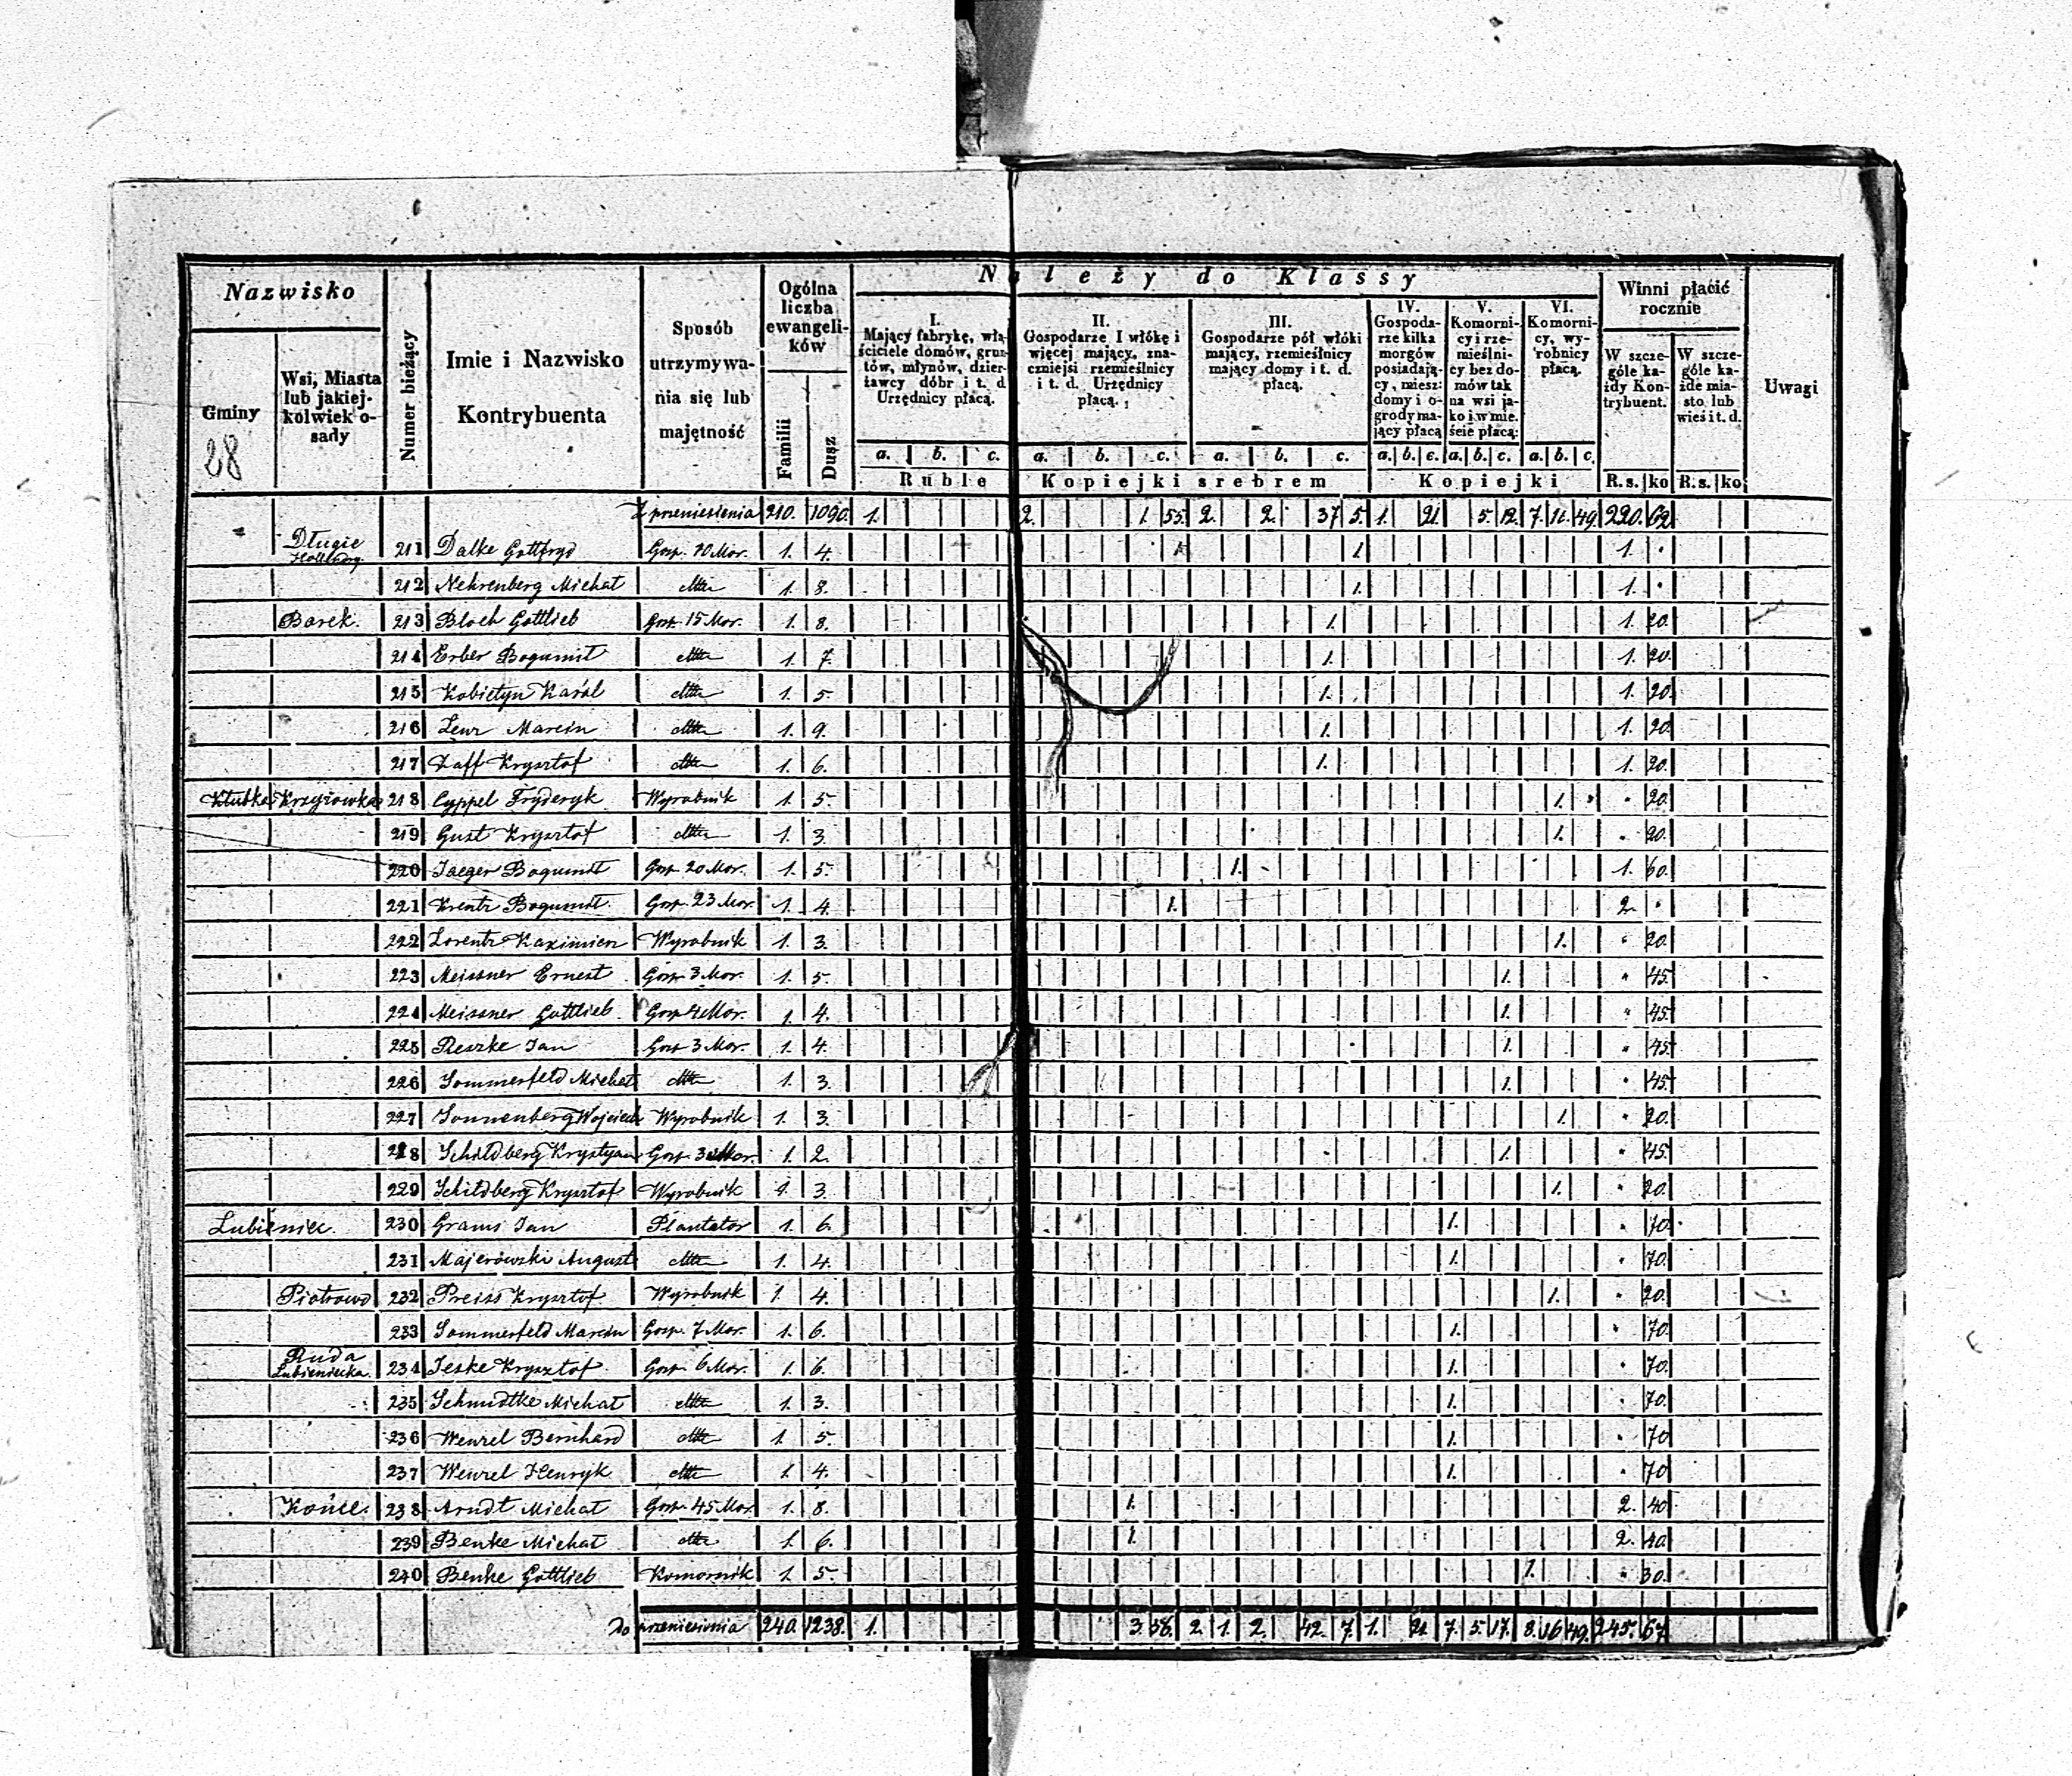 Nazwisko
Gminy
28
Wsi, Miasta lub jakiej-kolwiek o-sady
Numer bieżący
Imie i Nazwisko Kontrybuenta
Sposób utrzymywa-nia się lub majętność
Ogólna liczba ewangeli-ków
Familii
Dusz
Należy do Klassy
I. Mający fabrykę, wła-ściciele domów, grun-tów, młynów, dzier-żawcy dóbr i t. d Urzędnicy płacą.
II. Gospodarze 1 włókę i więcej mający, zna-czniejsi rzemieślnicy i t. d. Urzędnicy płacą.
III. Gospodarze pół włóki mający, rzemieślnicy mający domy i t. d. płacą.
IV. Gospoda-rze kilka morgów posiadają-cy, miesz: domy i o-grody ma-jący płacą
V. Komorni-cy i rze-mieślni-cy bez do-mów tak na wsi ja-ko i w mie-ście płacą:
VI. Komorni-cy, wy-robnicy płacą.
Winni płacić rocznie
W szcze-góle ka-żdy Kon-trybuent.
W szcze-góle ka-żde mia-sto lub wieś i t. d.
Uwagi
a. b. c. a. b. c. a. b. c. a. b. c. a. b. c. a. b. c.
Ruble Kopiejki srebrem Kopiejki R.s. ko R.s. ko
Z przeniesienia 210. 1090. 1. 2. 1. 55. 2. 2. 37 5. 1. 21. 5. 12. 7. 11. 49. 220. 62
Długie 211 Dalke Gottfryd Gosp. 10 Mor. 1. 4. 1. 1.
212 Nehrenberg Michał dtto 1. 8. 1. 1.
Borek. 213 Bloch Gottlieb Gosp. 15 Mor. 1. 8. 1. 1. 20.
214 Erber Bogumił dtto 1. 7. 1. 1. 20.
215 Kobietyn Karól dtto 1. 5. 1. 1. 20.
216 Zeur Marcin dtto 1. 9. 1. 1. 20.
217 Zaff Krysztof dtto 1. 6. 1. 1. 20.
Kłubka Krzyżowka 218 Cyppel Fryderyk Wyrobnik 1. 5. 1. 20.
219 Gust Krysztof dtto 1. 3. 1. 20.
220 Jaeger Bogumił Gosp. 20 Mor. 1. 5. 1. 1. 60.
221 Krentz Bogumił Gosp. 23 Mor. 1. 4. 1. 2.
222 Lorentz Kazimierz Wyrobnik 1. 3. 1. 20.
223 Meissner Ernest Gosp. 3 Mor. 1. 5. 1. 45.
224 Meissner Gottlieb Gosp. 4 Mor. 1. 4. 1. 45.
225 Reszke Jan Gosp. 3 Mor. 1. 4. 1. 45.
226 Sommerfeld Michał dtto 1. 3. 1. 45.
227 Sonnenberg Wojciech Wyrobnik 1. 3. 1. 20.
228 Schildberg Krystyan Gosp. 3 Mor. 1. 2. 1. 45.
229 Schildberg Krysztof Wyrobnik 1. 3. 1. 20.
Lubieniec. 230 Grams Jan Plantator 1. 6. 1. 70.
231 Majerowski August dtto 1. 4. 1. 70.
Piotrowo 232 Preiss Krysztof Wyrobnik 1. 4. 1. 20.
233 Sommerfeld Marcin Gosp. 7 Mor. 1. 6. 1. 70.
Ruda Lubieniecka. 234 Jeske Krysztof Gosp. 6 Mor. 1. 6. 1. 70.
235 Schmidtke Michał dtto 1. 3. 1. 70.
236 Wenzel Bernhard dtto 1. 5. 1. 70
237 Wenzel Henryk dtto 1. 4. 1. 70
Końce. 238 Arndt Michał Gosp. 45 Mor. 1. 8. 1. 2. 40
239 Benke Michał dtto 1. 6. 1. 2. 40.
240 Benke Gottlieb Komornik 1. 5. 1. 30.
Do przeniesienia 240. 1238. 1. 3. 56. 2. 1. 2. 42. 7. 1. 21. 7. 5. 17. 8. 16 49. 245. 67